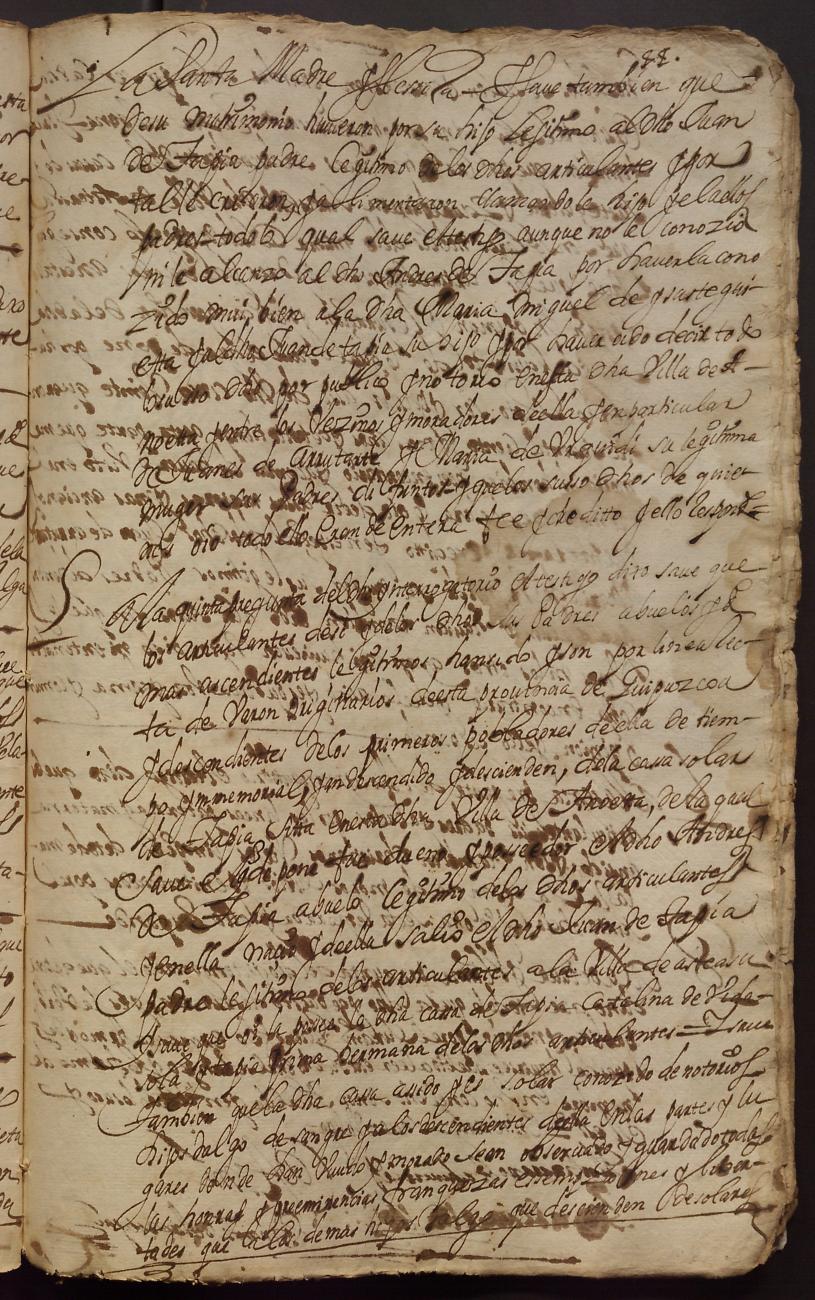 88.
La Santa Madre Yglesia = Y save tambien que
de su matrimonio huvieron por su hijo legitimo al dho Juan
de Tapia padre legitimo de los dhos articulantes y por
tal le criaron y alimentaron llamandole hijo y el a ellos
padres todo lo qual save el testigo aunque no le conozio
ni le alcanzo al dho Andres de Tapia por haverla cono
zido mui bien a la dha Maria Miguel de
esta y al dho Juan de tapia su hijo y por haver oido decir todo
lo suso dho por publico y notorio en esta dha Villa de A-
noeta y entre los Vezinos y moradores de ella y en particular
a Juanes de Arrutarte y Maria de su legitima
muger sus Padres difuntos y que los suso dhos de quie-
nes oio todo ello heran de entera fee y credito y ello respde =
5 A la quinta pregunta del dho interrogatorio el testigo dixo save que
los articulantes desi y de los dhos sus Padres abuelos y de
mas ascendientes legitimos, han sido y son por linea rec-
ta de Varon originarios de esta provincia de Guipuzcoa
y descendientes de los primeros pobladores de ella de tiem-
po ynmemorial, y an descendido y descienden, de la casa solar
de Tapia sitta en esta dha Villa de Anoetta, de la qual
save el tgo depone fue dueño y poseedor el dho Andres
de Tapia abuelo legitimo de los dhos articulantes
y en ella nacio y de ella salio el dho Juan de Tapia
padre legitimo de los articulantes a la Villa de asteasu
y save que oi la posee la dha casa de Tapia Catalina de
sola y tapia prima hermana de los dhos articulantes = Y save
tambien que la dha casa a sido y es solar conozido de notorios
hijos dalgo de sangre y a los descendientes de ella en las partes y lu
gares donde han vivido y morado se an observado y guardado todas
las honras y preeminencias, franquezas esempziones y liber-
tades que a los demas hijos dalgo que descienden de solares